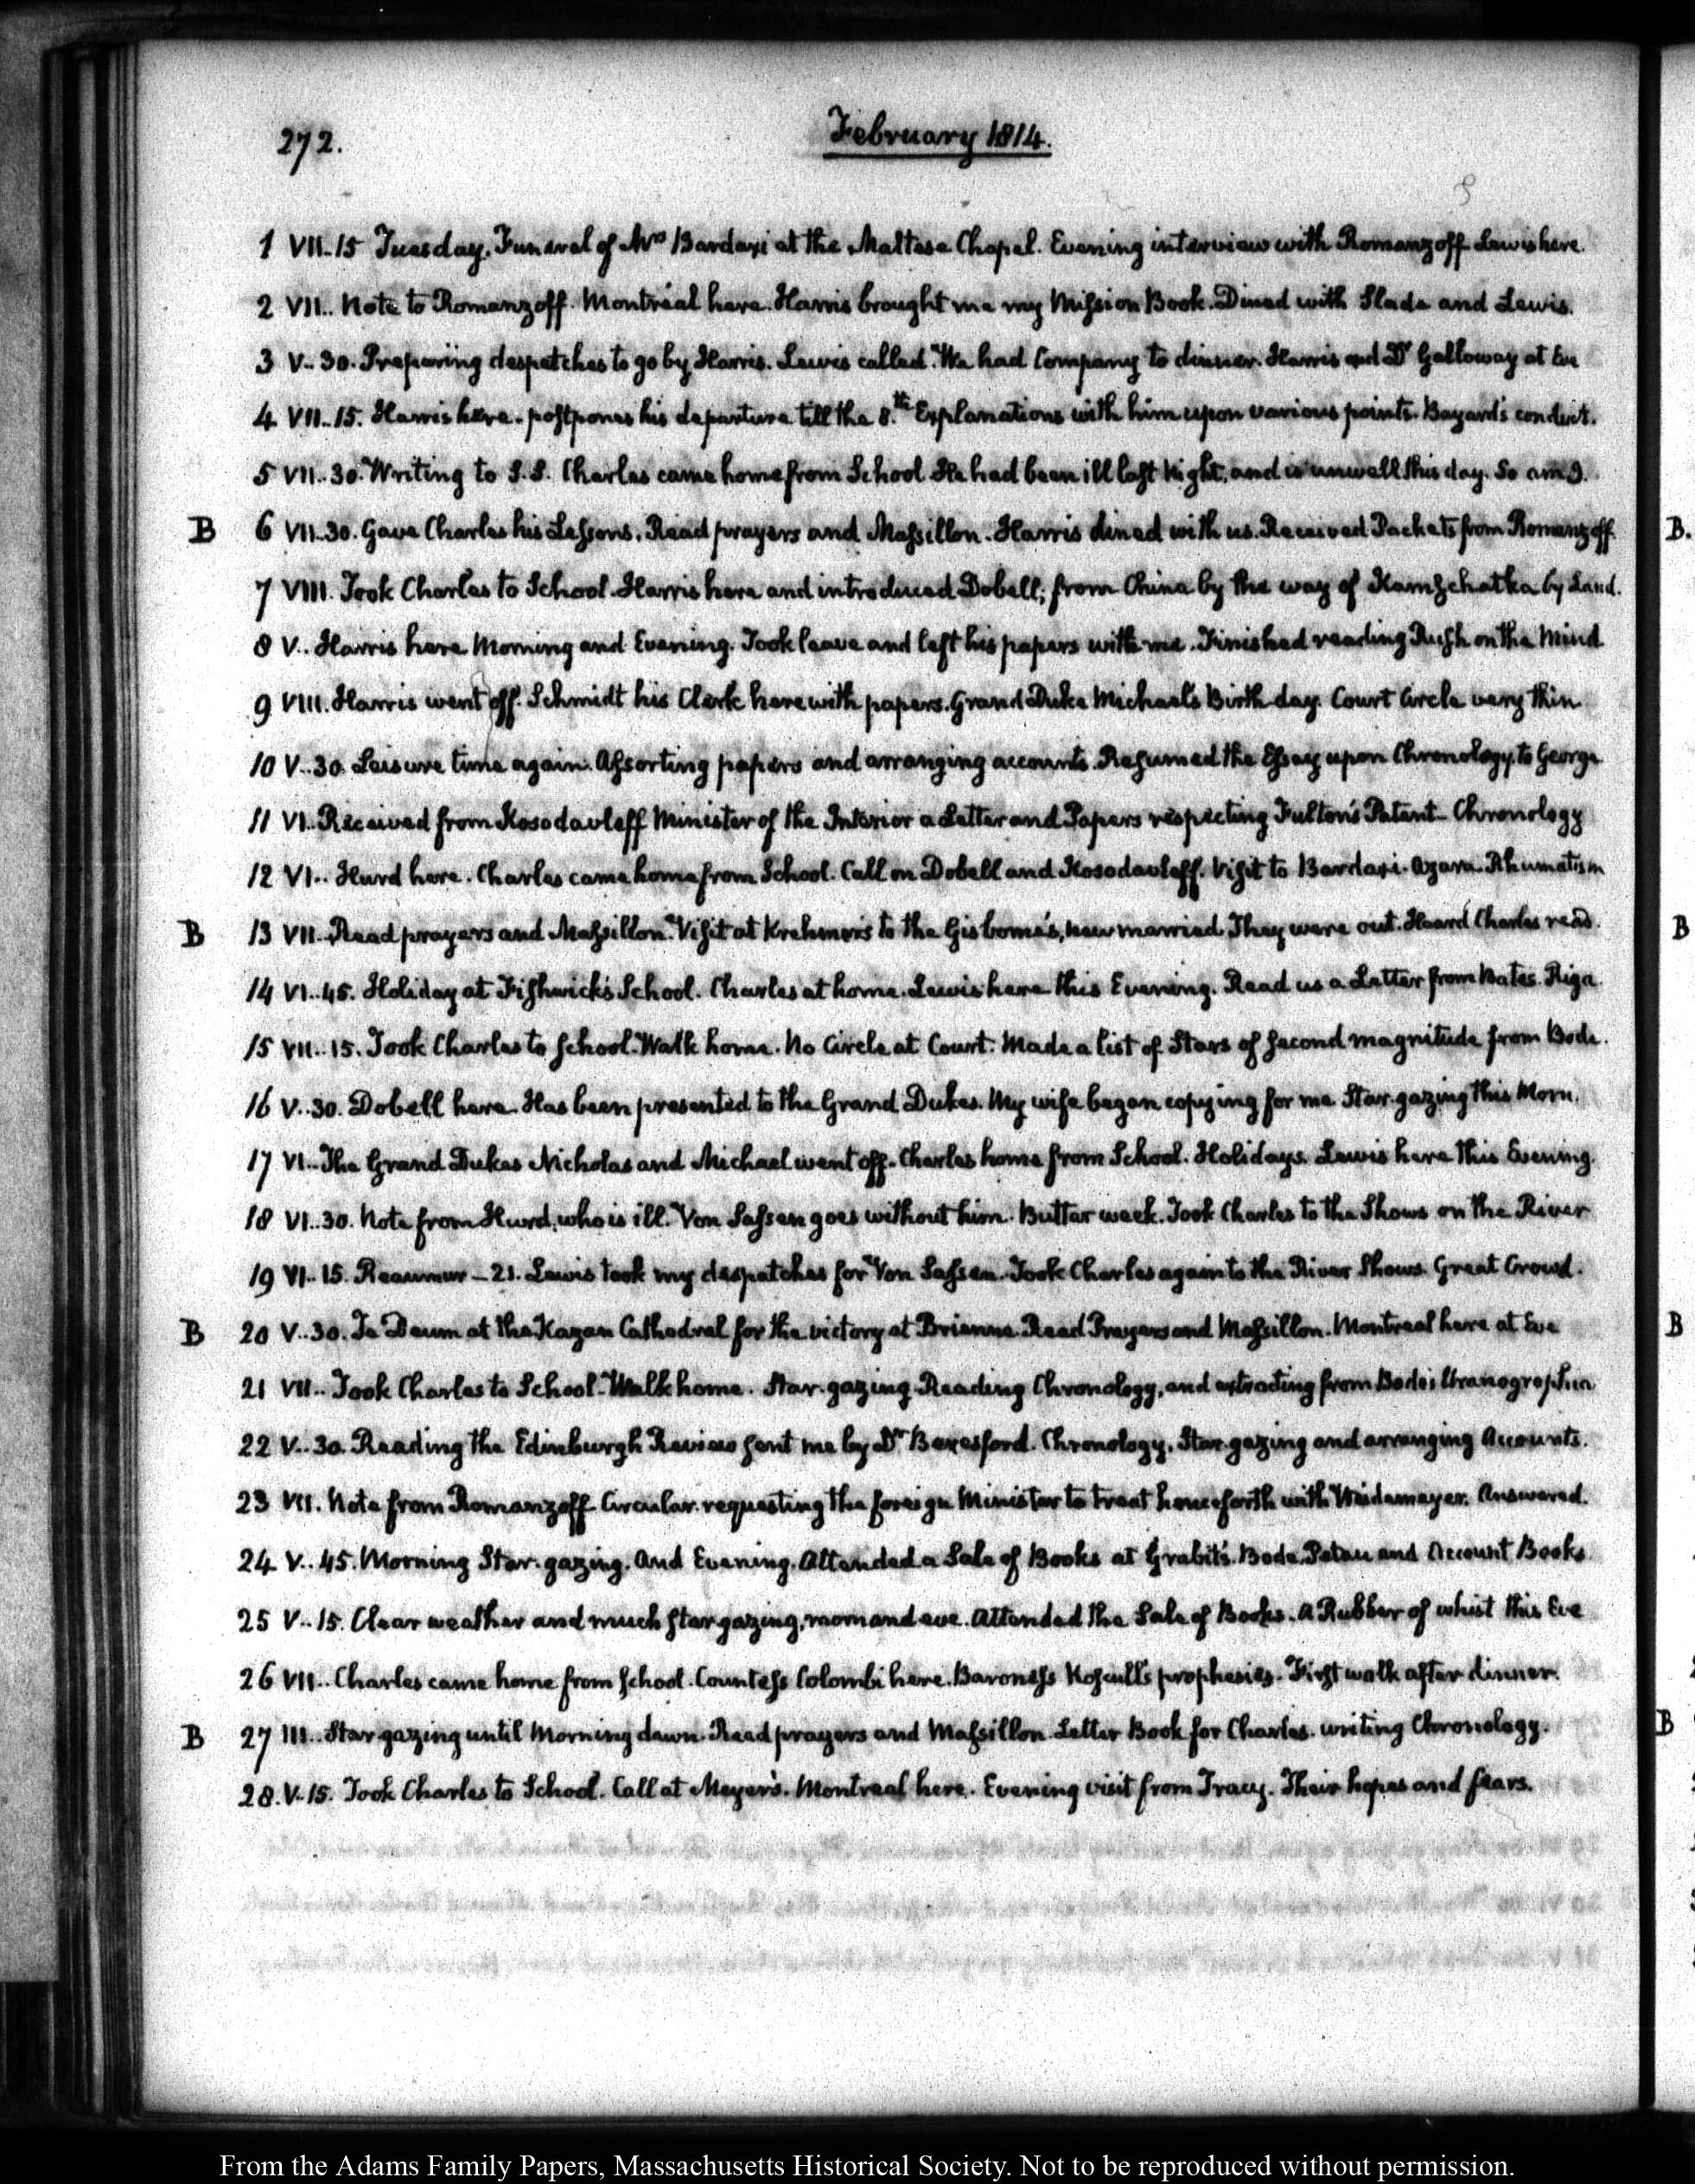 272.
February 1814.
1 VII..15 Tuesday. Funeral of Mrs Bardaxi at the Maltese Chapel. Evening interview with Romanzoff Lewis here.
2 VII.. Note to Romanzoff. Montréal here. Harris brought me my Mission Book. Dined with Slade and Lewis.
3 V..30. Preparing despatches to go by Harris. Lewis called. We had Company to dinner. Harris and Dr Galloway at Eve
4 VII..15. Harris here. postpones his departure till the 8.th Explanations with him upon various points. Bayard's conduct.
5 VII..30. Writing to S.S. Charles came home from School. He had been ill last Night, and is unwell this day. So am I.
B 6 VII..30. Gave Charles his Lessons. Read prayers and Massillon. Harris dined with us. Received Packets from Romanzoff.
7 VIII. Took Charles to School. Harris here and introduced Dobell; from China by the way of Kamschatka by Land.
8 V.. Harris here Morning and Evening. Took leave and left his papers with me. Finished reading Rush on the Mind
9 VIII. Harris went off. Schmidt his Clerk here with papers. Grand Duke Michael's Birth day. Court Circle very thin
10 V..30. Leisure time again. Assorting papers and arranging accounts. Resumed the Essay upon Chronology, to George
11 VI.. Received from Kosodavleff Minister of the Interior a Letter and Papers respecting Fulton's Patent_ Chronology
12 VI.. Hurd here. Charles came home from School. Call on Dobell and Kosodavleff. Visit to Bardaxi. Azara. Rhumatism
B 13 VII. Read prayers and Massillon. Visit at Krehmer's to the Gisborne's, new married. They were out. Heard Charles read.
14 VI..45. Holiday at Fishwick's School. Charles at home. Lewis here this Evening. Read us a Letter from Bates. Riga.
15 VII..15. Took Charles to School. Walk home. No Circle at Court. Made a list of Stars of second magnitude from Bode.
16 V..30. Dobell here. Has been presented to the Grand Dukes. My wife began copying for me Star-gazing this Morn.
17 VI.. The Grand Dukes Nicholas and Michael went off. Charles home from School. Holidays. Lewis here this Evening.
18 VI..30. Note from Hurd, who is ill. Von Sassen goes without him. Butter week. Took Charles to the Shows on the River
19 VI..15. Reaumur _21. Lewis took my despatches for Von Sassen. Took Charles again to the River Shows. Great Crowd.
B 20 V..30. Te Deum at the Kazan Cathedral for the victory at Brienne. Read Prayers and Massillon. Montreal here at Eve
21 VII.. Took Charles to School. Walk home. Star-gazing. Reading Chronology, and extracting from Bode's Uranographia
22 V..30. Reading the Edinburgh Review sent me by Dr Beresford. Chronology, Star-gazing and arranging Accounts.
23 VII. Note from Romanzoff Circular. requesting the foreign Minister to treat henceforth with Weidemeyer. Answered.
24 V..45. Morning Star-gazing. And Evening. Attended a Sale of Books at Grabit's. Bode. Petau and Account Books
25 V..15. Clear weather and much star gazing, morn and eve. Attended the Sale of Books. A Rubber of whist this Eve
26 VII.. Charles came home from School. Countess Colombi here. Baroness Koscull's prophesies. First walk after dinner.
B 27 III.. Star-gazing until Morning dawn. Read prayers and Massillon. Letter Book for Charles. writing Chronology.
28. V..15. Took Charles to School. Call at Meyer's. Montreal here. Evening visit from Tracy. Their hopes and fears.
From the Adams Family Papers, Massachusetts Historical Society. Not to be reproduced without permission.